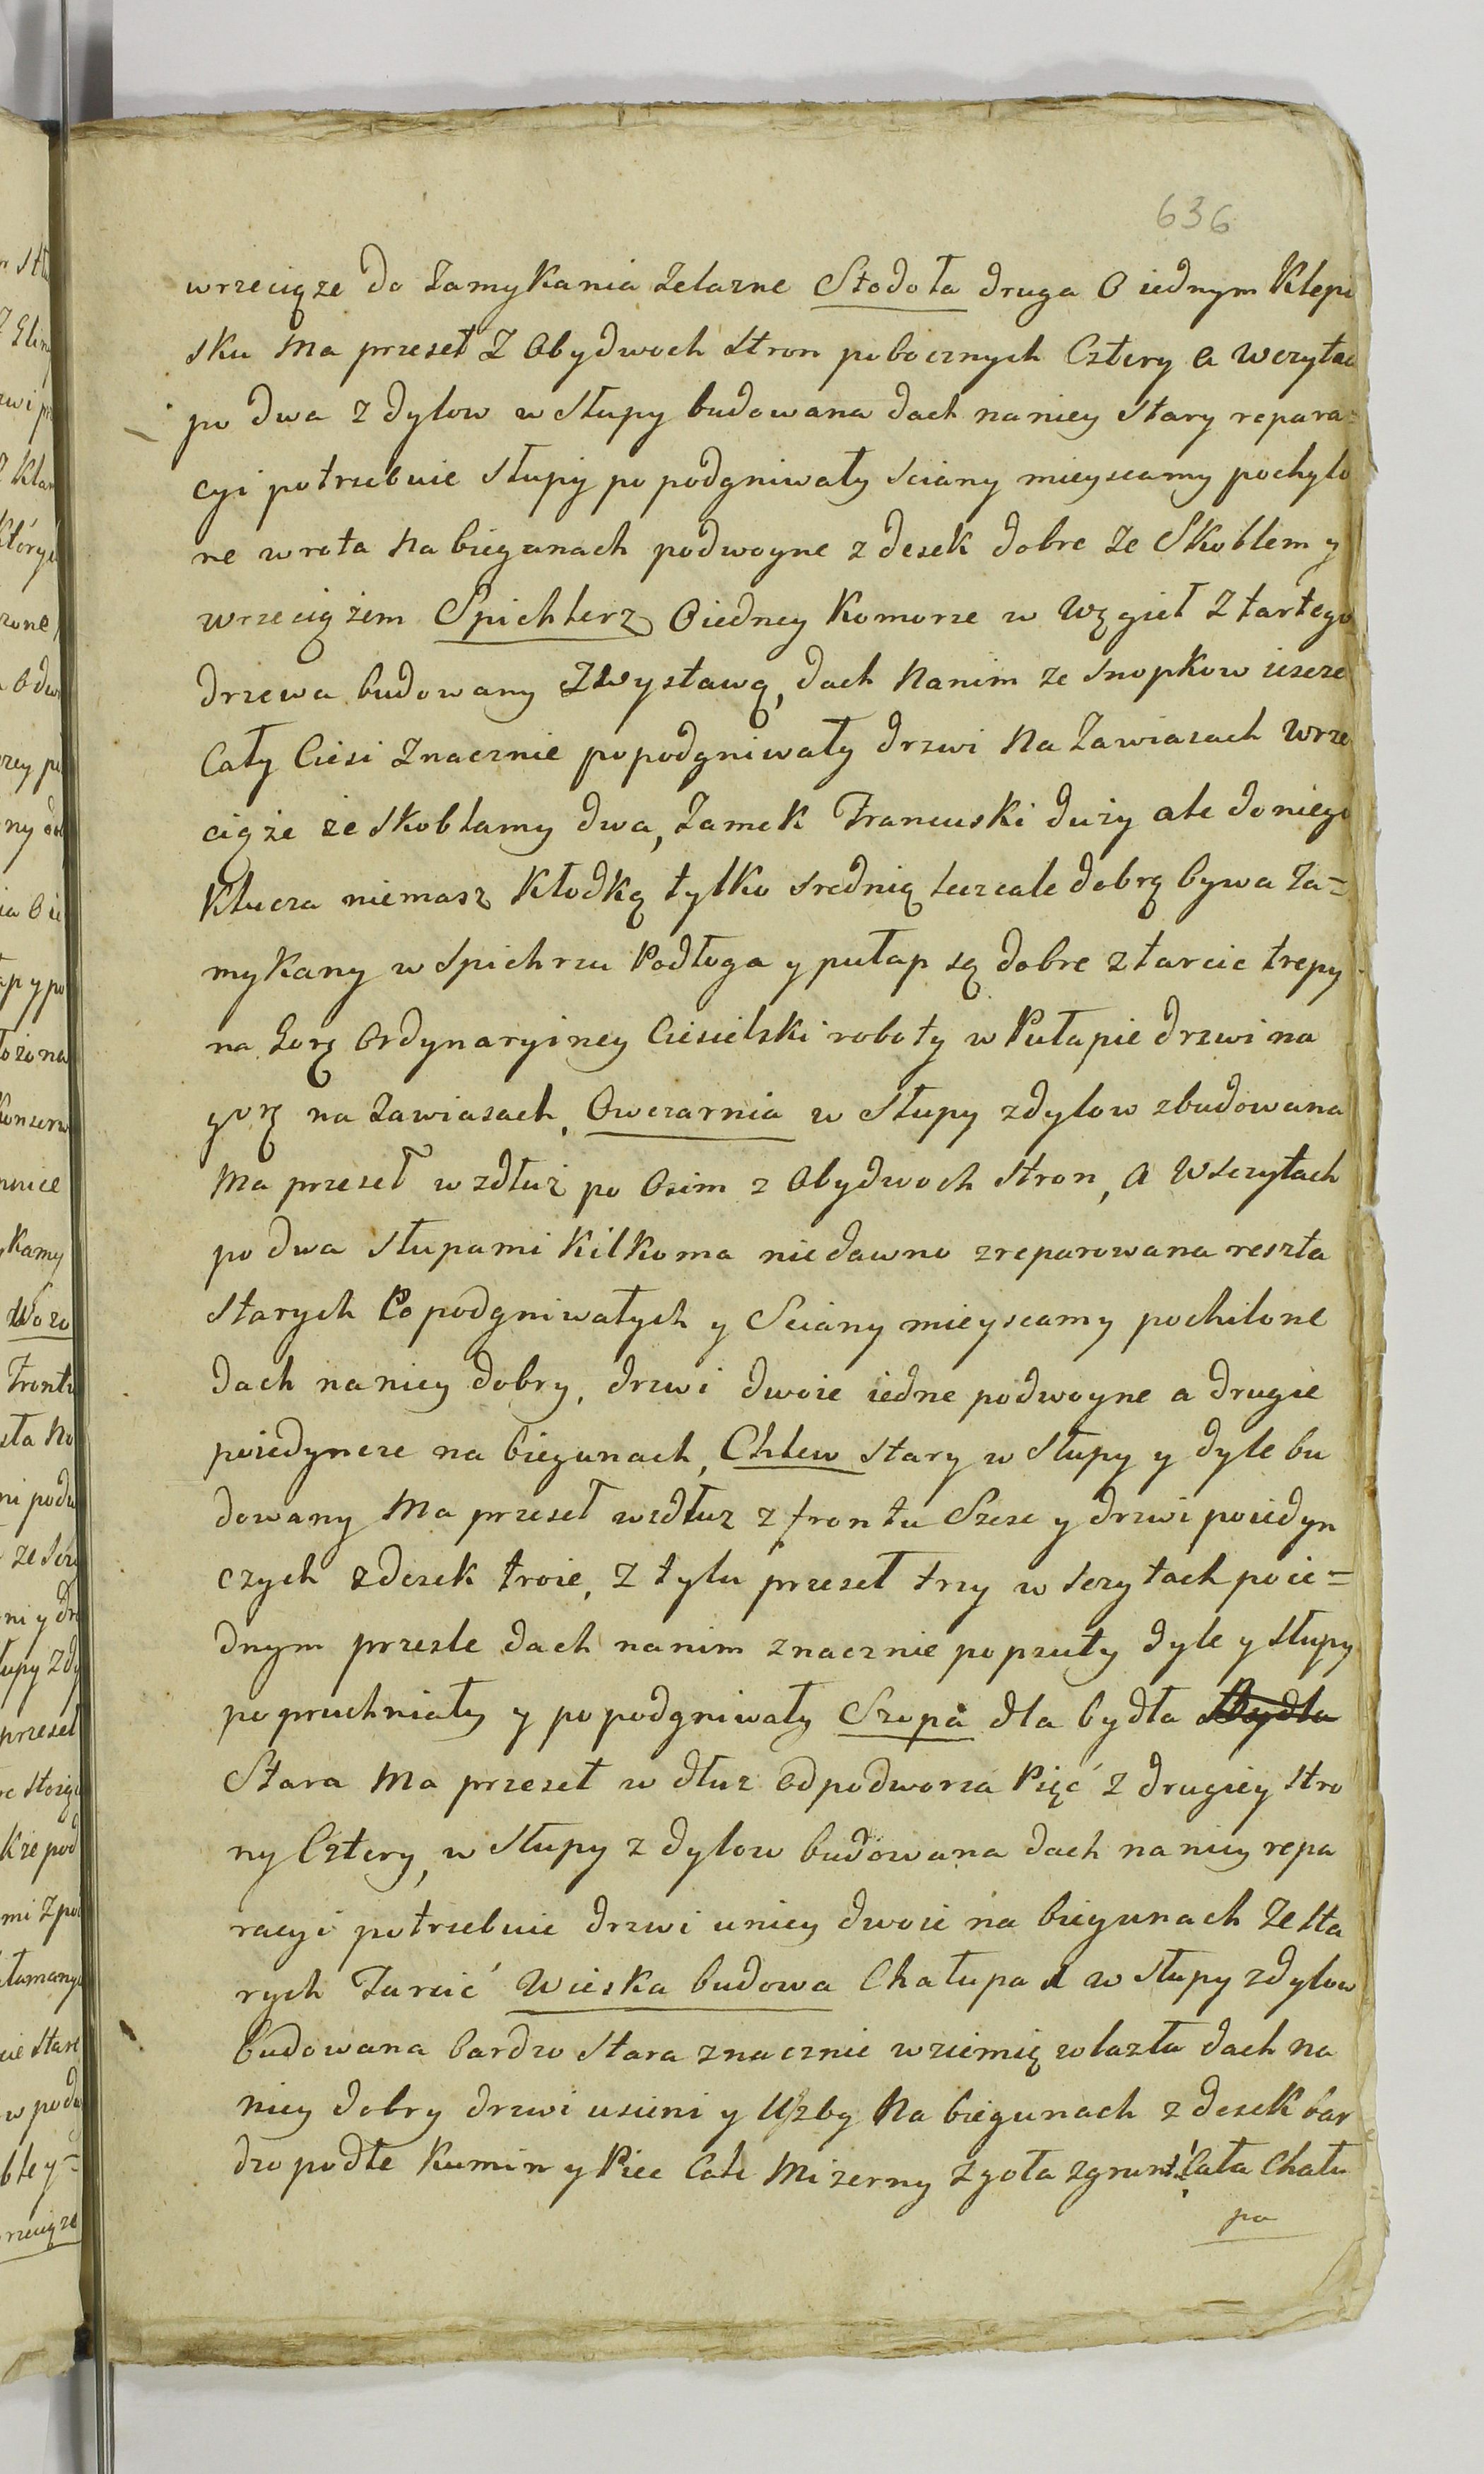 636
wrzeciąze do Zamykania Zelazne Stodoła druga O iednym Klepi
sku Ma przeseł Z Obydwoch stron pobocznych Cztery a wczytac
po dwa z dylow w Słupy budowana dach na niey stary repara=
cyi potrzebuie Słupy po podgniwały sciany mieyscamy pochylo
ne wrota Na biegunach podwoyne z desek dobre Ze Skoblem y
wrzeciążem Spichlerz O iedney Komorze w Węgieł Z tartego
drzewa budowany Z Wystawą, dach Nanim ze snopkow iescze
Cały Ciesi Znacznie popodgniwały drzwi Na Zawiasach Wrze
ciąże ze skoblamy dwa, Zamek Francuski duży ale do niego
Klucza niemasz Kłodką tylko srednią lecz cale dobrą bywa Za=
mykany w Spichrzu Podłoga y pułap są dobre z tarcic trepy
na Gorę Ordynaryiney Ciesielski roboty w Pułapie drzwi na
gorę na Zawiasach, Owczarnia w Słupy z dylow zbudowana
Ma przeseł wzdłuż po Osim z Obydwoch stron, A Wsczytach
po dwa słupami Kilkoma niedawno zreparowana reszta
starych Popodgniwałych y Sciany mieyscamy pochilone
dach na niey dobry, drzwi dwoie iedne podwoyne a drugie
poiedyncze na biegunach, Chlew stary w Słupy y dyle bu
dowany Ma przeseł wzdłuz z frontu Szesc y drzwi poiedyn
czych z desek troie, Z tylu przeseł trzy w sczytach po ie=
dnym przesle dach nanim znacznie popsuty dyle y słupy
popruchniały y popodgniwały Szopa dla bydła Bydła
Stara Ma przeseł w dłuz Od podworza Pięć z drugiey stro
ny Cztery, w Słupy z dylow budowana dach na niey repa
racyi potrzebuie drzwi u niey dwoie na biegunach Ze sta
rych Tarcić Wieska budowa Chałupa 1 w Słupy z dylow
budowana bardzo stara znacznie w ziemię wlazła dach na
niey dobry drzwi u sieni y Izby Na biegunach z desek bar
dzo podłe Kumin y Piec Cale Mizerny zgoła z grunt: Cała Chału
pa